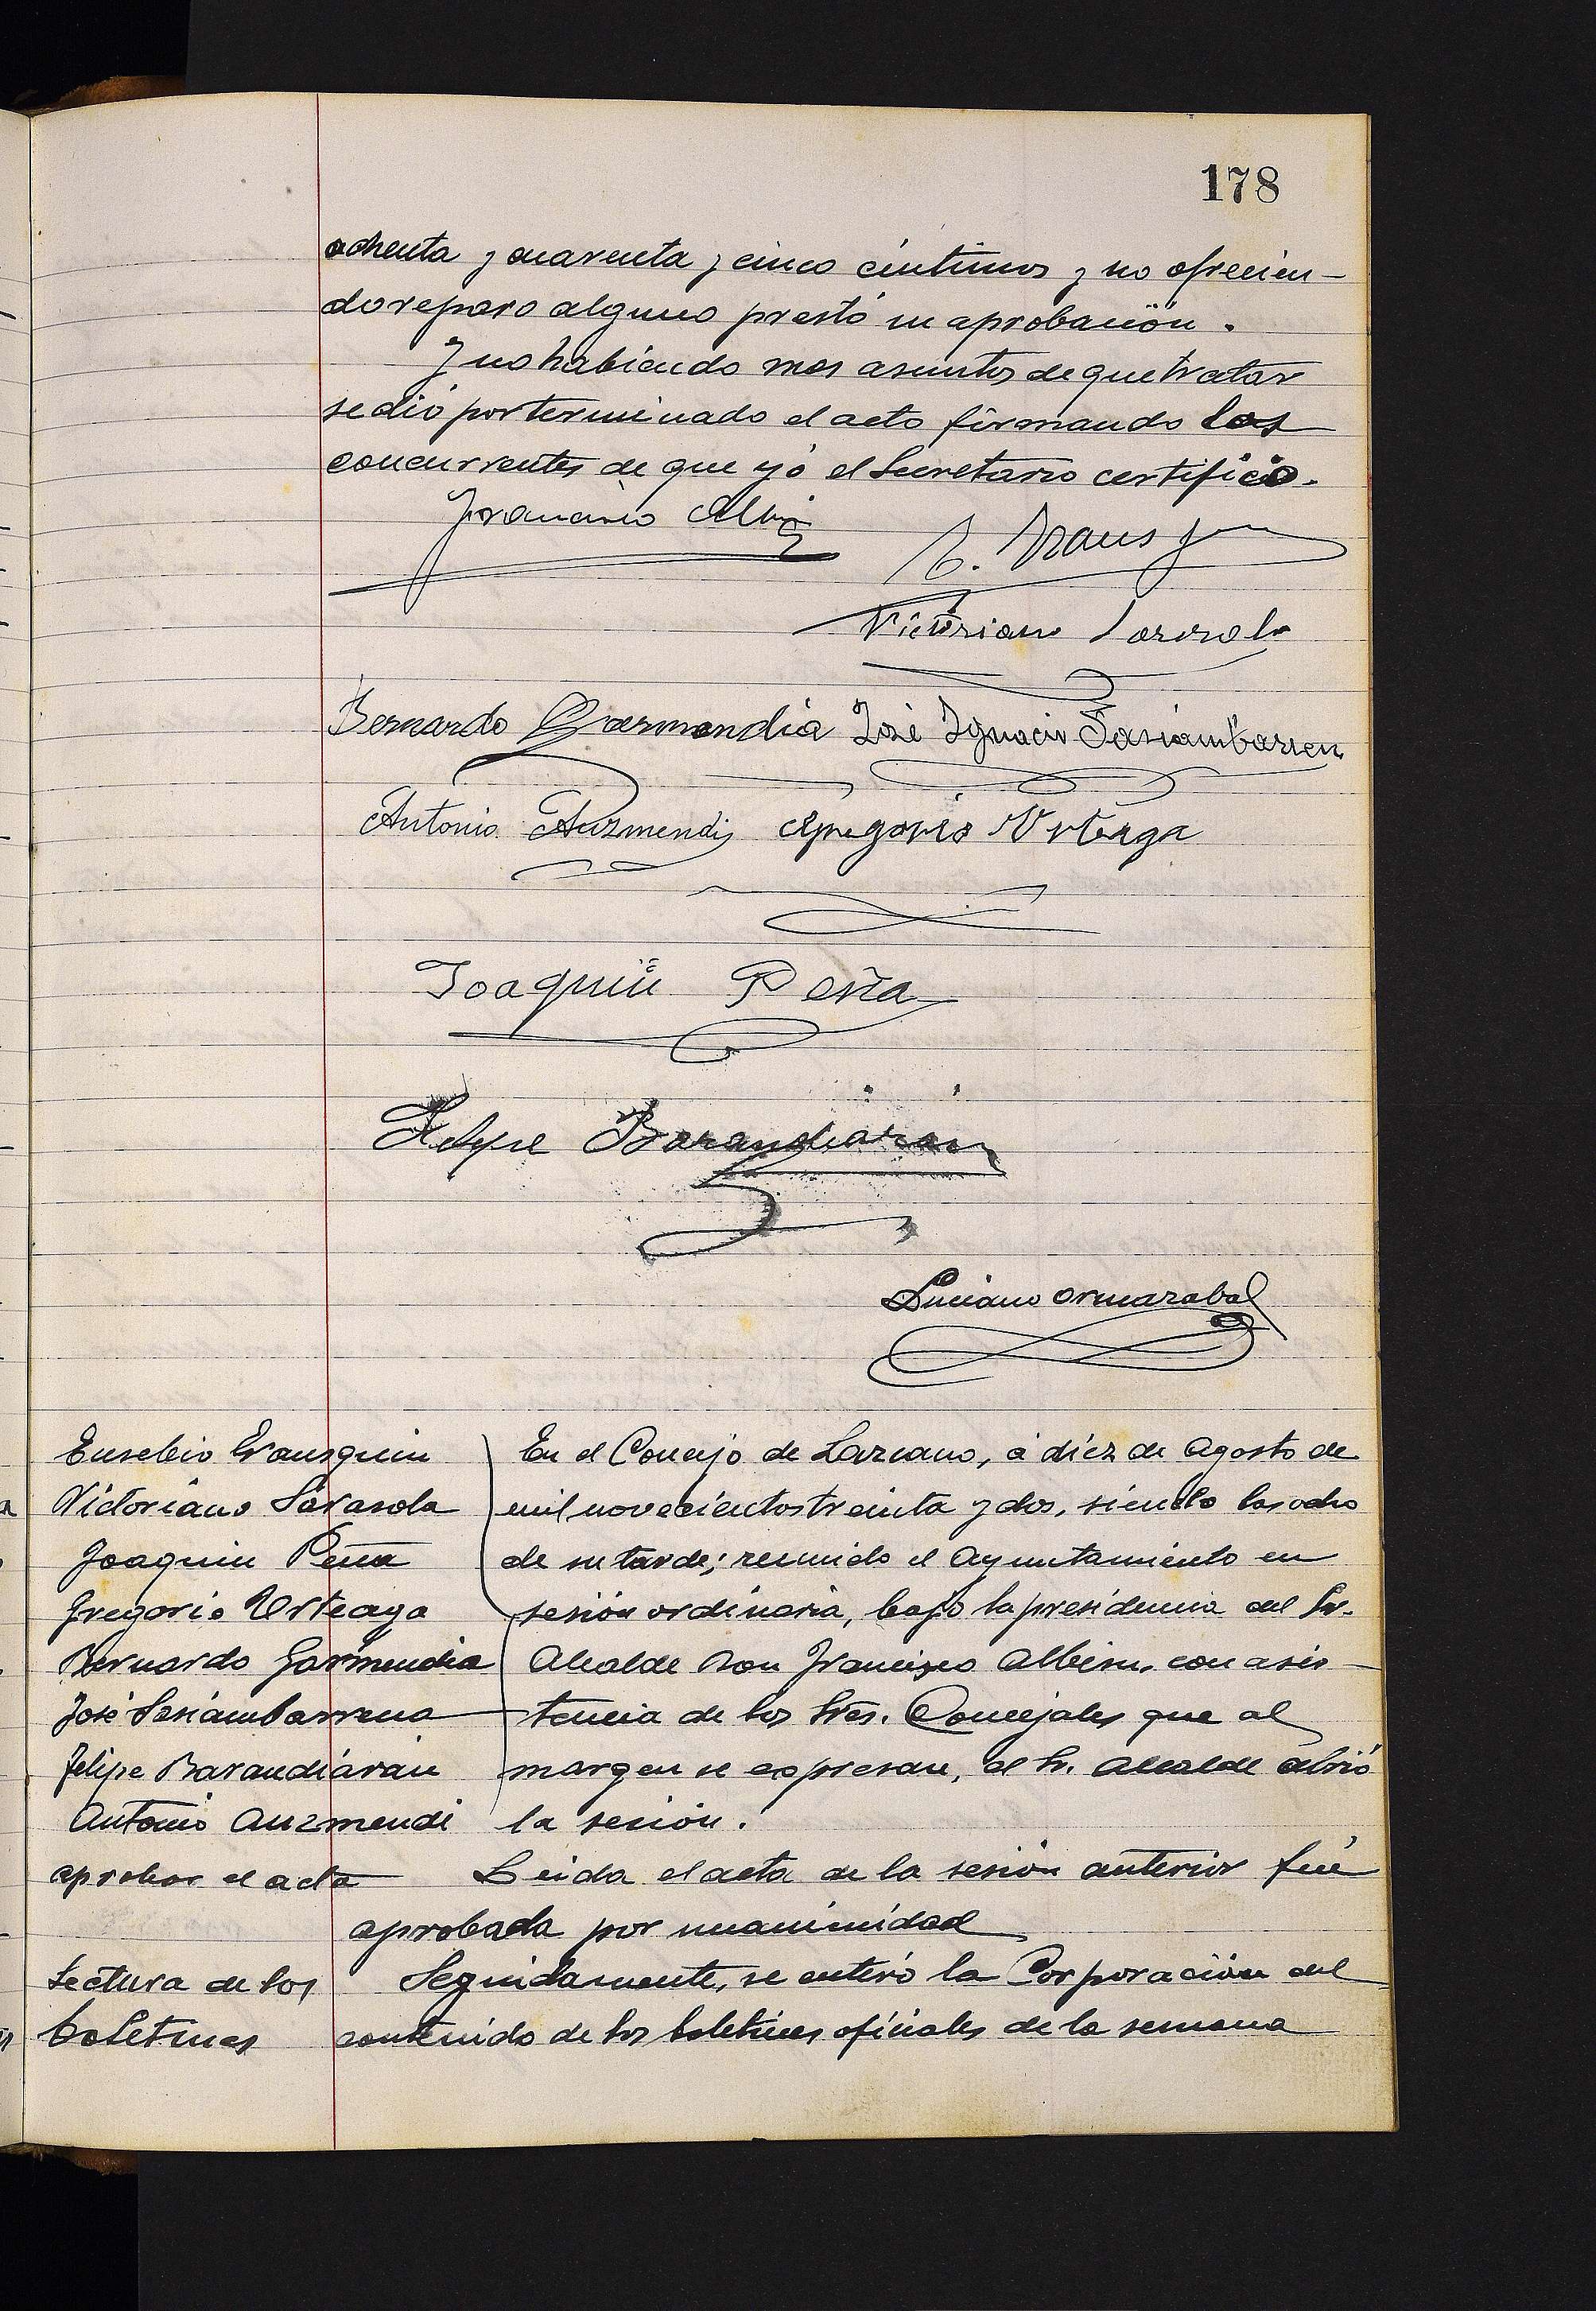 178
ochenta y cuarenta y cinco céntimos y no ofrecien-
do reparo alguno prestó su aprobación.
Y no habiendo mas asuntos de que tratar
se dió por terminado el acto firmando los
concurrentes de que yó el Secretario certifico.
Francisco Albi
E. Iraus
Victoriano Sarasola
Bernardo Garmendia José Ignacio Sasiambarren
Antonio Auzmendi Gregorio Urteaga
Joaquin Peña
Felipe Barandiaran
Luciano Ormazabal
Eusebio Irausquin
Victoriano Sarasola
Joaquin Peña
Gregorio Urteaga
Bernardo Garmendia
José Sasiambarrena
Felipe Barandiárán
Antonio Auzmendi
En el Concejo de Lazcano, á diez de Agosto de
mil novecientos treinta y dos, siendo las ocho
de su tarde; reunido el Ayuntamiento en
sesión ordinaria, bajo la presidencia del Sr.
Alcalde Don Francisco Albisu, con asis-
tencia de los Sres. Concejales que al
margen se expresan, el Sr. Alcalde abrió
la sesión.
aprobar el acta
Leida el acta de la sesión anterior fué
aprobada por unanimidad
Lectura de los
boletines
Seguidamente, se enteró la Corporación del
contenido de los boletines oficiales de la semana